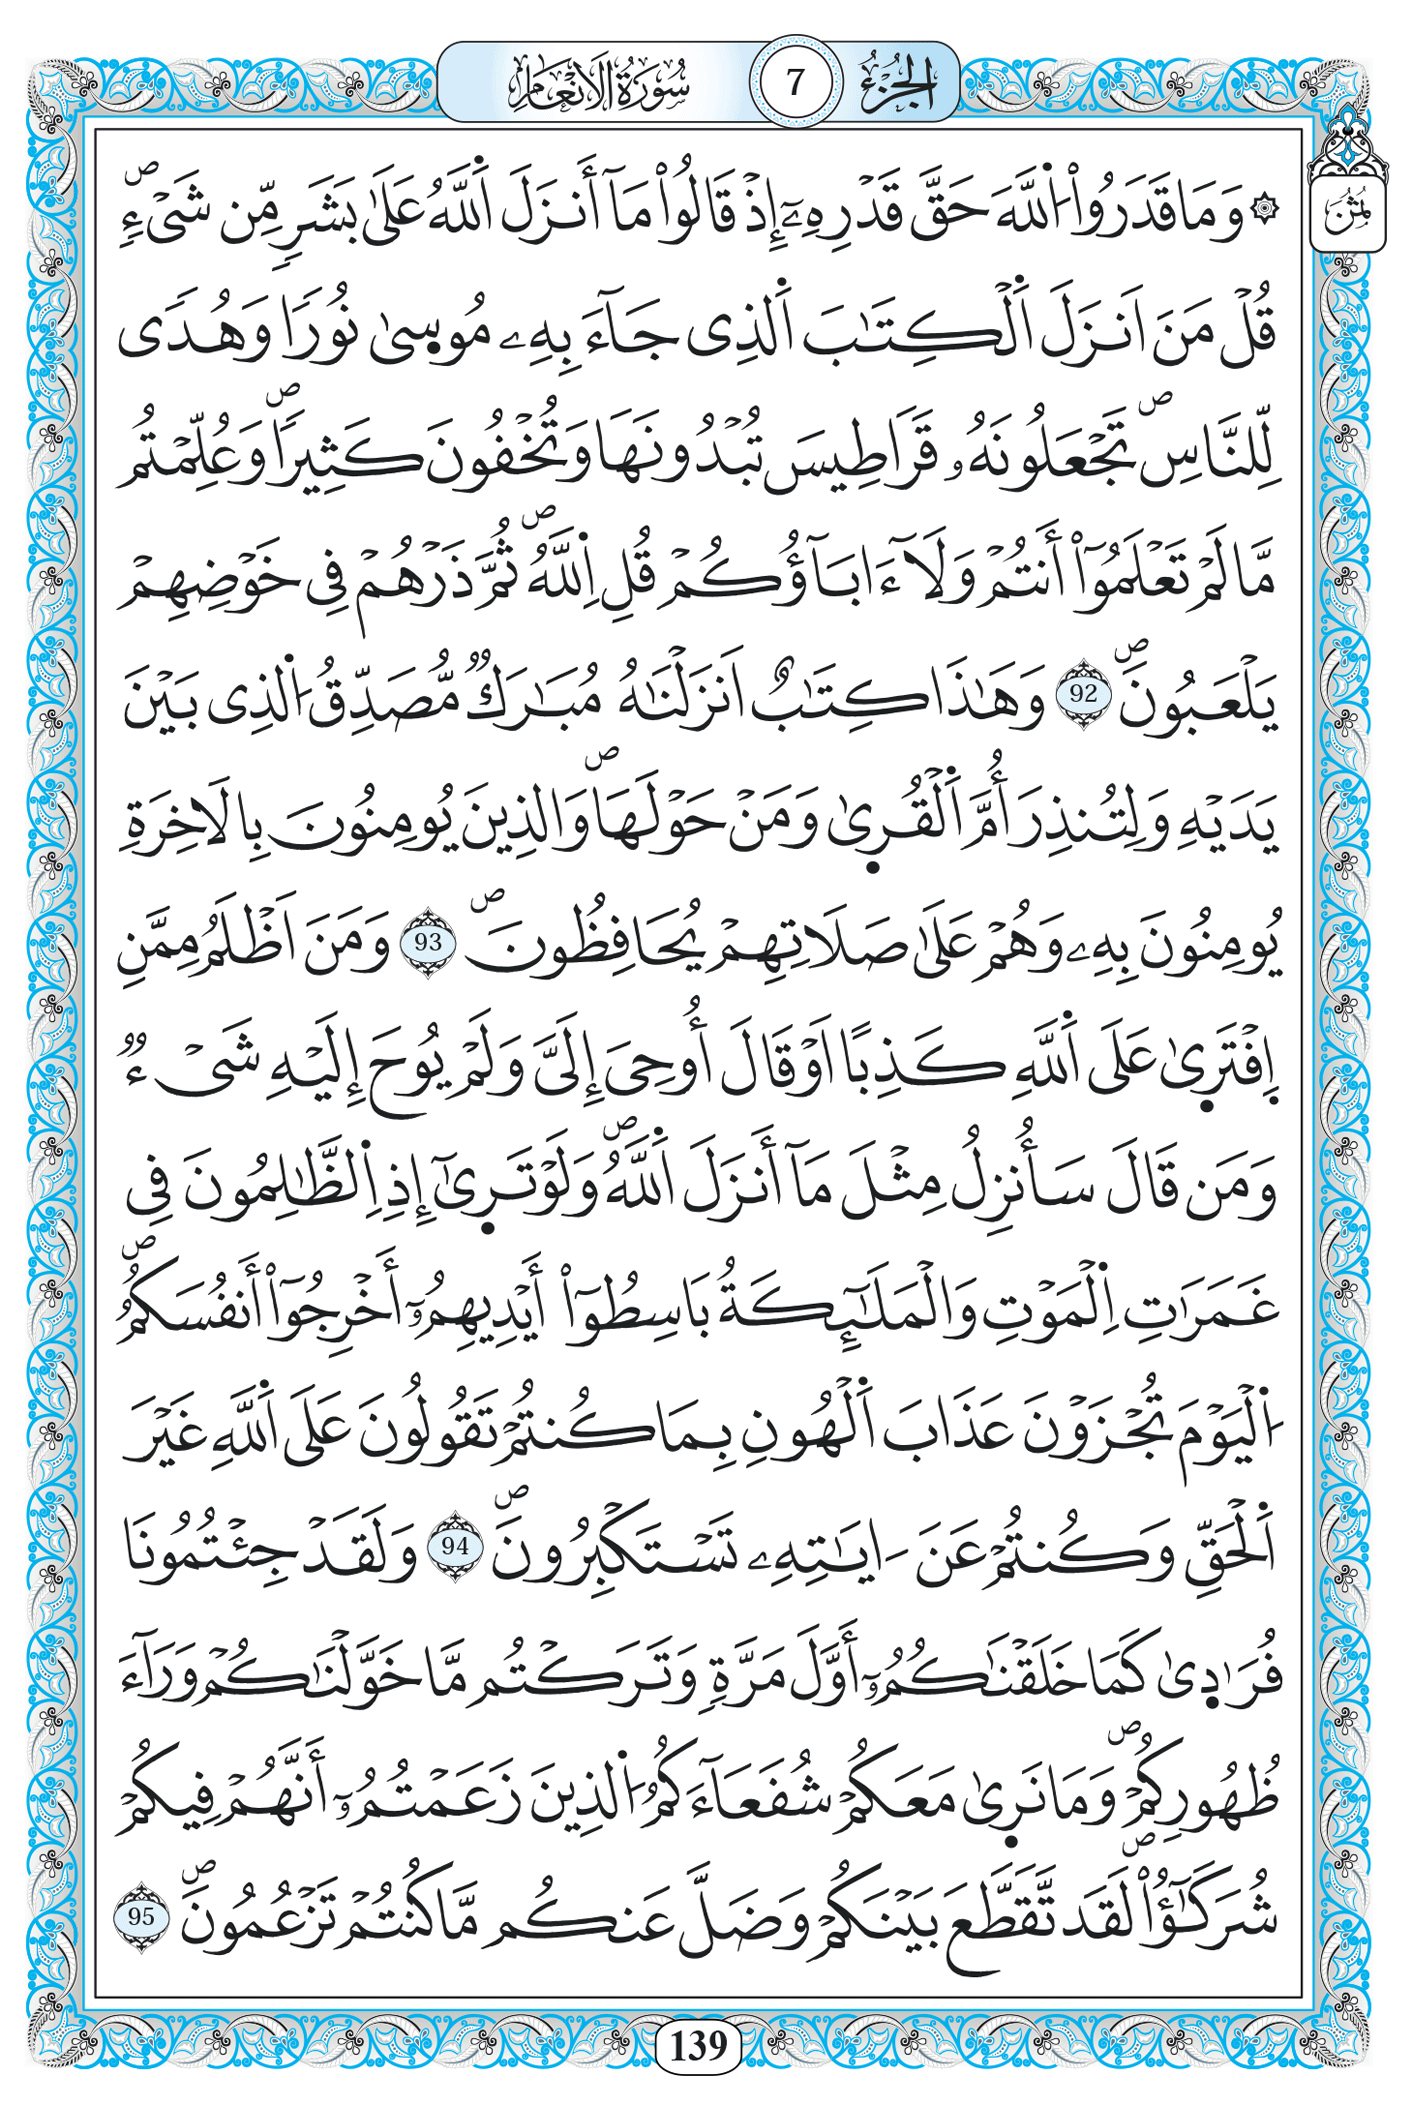 الجزء 7 سورة الانعام
ثمن
۞ وَمَا قَدَرُواْ اُ۬للَّهَ حَقَّ قَدْرِهِۦٓ إِذْ قَالُواْ مَآ أَنزَلَ اَ۬للَّهُ عَلَىٰ بَشَرٖ مِّن شَےْءٖۖ
قُلْ مَنَ اَنزَلَ اَ۬لْكِتَٰبَ اَ۬لذِے جَآءَ بِهِۦ مُوس۪يٰ نُوراٗ وَهُديٗ
لِّلنَّاسِۖ تَجْعَلُونَهُۥ قَرَاطِيسَ تُبْدُونَهَا وَتُخْفُونَ كَثِيراٗۖ وَعُلِّمْتُم
مَّا لَمْ تَعْلَمُوٓاْ أَنتُمْ وَلَآ ءَابَآؤُكُمْ قُلِ اِ۬للَّهُۖ ثُمَّ ذَرْهُمْ فِے خَوْضِهِمْ
يَلْعَبُونَۖ 92 وَهَٰذَا كِتَٰبٌ اَنزَلْنَٰهُ مُبَٰرَكٞ مُّصَدِّقُ اُ۬لذِے بَيْنَ
يَدَيْهِ وَلِتُنذِرَ أُمَّ اَ۬لْقُر۪يٰ وَمَنْ حَوْلَهَاۖ وَالذِينَ يُومِنُونَ بِالَاخِرَةِ
يُومِنُونَ بِهِۦ وَهُمْ عَلَىٰ صَلَاتِهِمْ يُحَافِظُونَۖ 93 وَمَنَ اَظْلَمُ مِمَّنِ
اِ۪فْتَر۪يٰ عَلَى اَ۬للَّهِ كَذِباً اَوْ قَالَ أُوحِيَ إِلَيَّ وَلَمْ يُوحَ إِلَيْهِ شَےْءٞ
وَمَن قَالَ سَأُنزِلُ مِثْلَ مَآ أَنزَلَ اَ۬للَّهُۖ وَلَوْ تَر۪يٰٓ إِذِ اِ۬لظَّٰلِمُونَ فِے
غَمَرَٰتِ اِ۬لْمَوْتِ وَالْمَلَٰٓئِكَةُ بَاسِطُوٓاْ أَيْدِيهِمُۥٓ أَخْرِجُوٓاْ أَنفُسَكُمُۖ
اُ۬لْيَوْمَ تُجْزَوْنَ عَذَابَ اَ۬لْهُونِ بِمَا كُنتُمْ تَقُولُونَ عَلَى اَ۬للَّهِ غَيْرَ
اَ۬لْحَقِّ وَكُنتُمْ عَنَ اٰيَٰتِهِۦ تَسْتَكْبِرُونَۖ 94 وَلَقَدْ جِئْتُمُونَا
فُرَٰد۪يٰ كَمَا خَلَقْنَٰكُمُۥٓ أَوَّلَ مَرَّةٖ وَتَرَكْتُم مَّا خَوَّلْنَٰكُمْ وَرَآءَ
ظُهُورِكُمْۖ وَمَا نَر۪يٰ مَعَكُمْ شُفَعَآءَكُمُ اُ۬لذِينَ زَعَمْتُمُۥٓ أَنَّهُمْ فِيكُمْ
شُرَكَٰٓؤُاْۖ لَقَد تَّقَطَّعَ بَيْنَكُمْ وَضَلَّ عَنكُم مَّا كُنتُمْ تَزْعُمُونَۖ 95
139